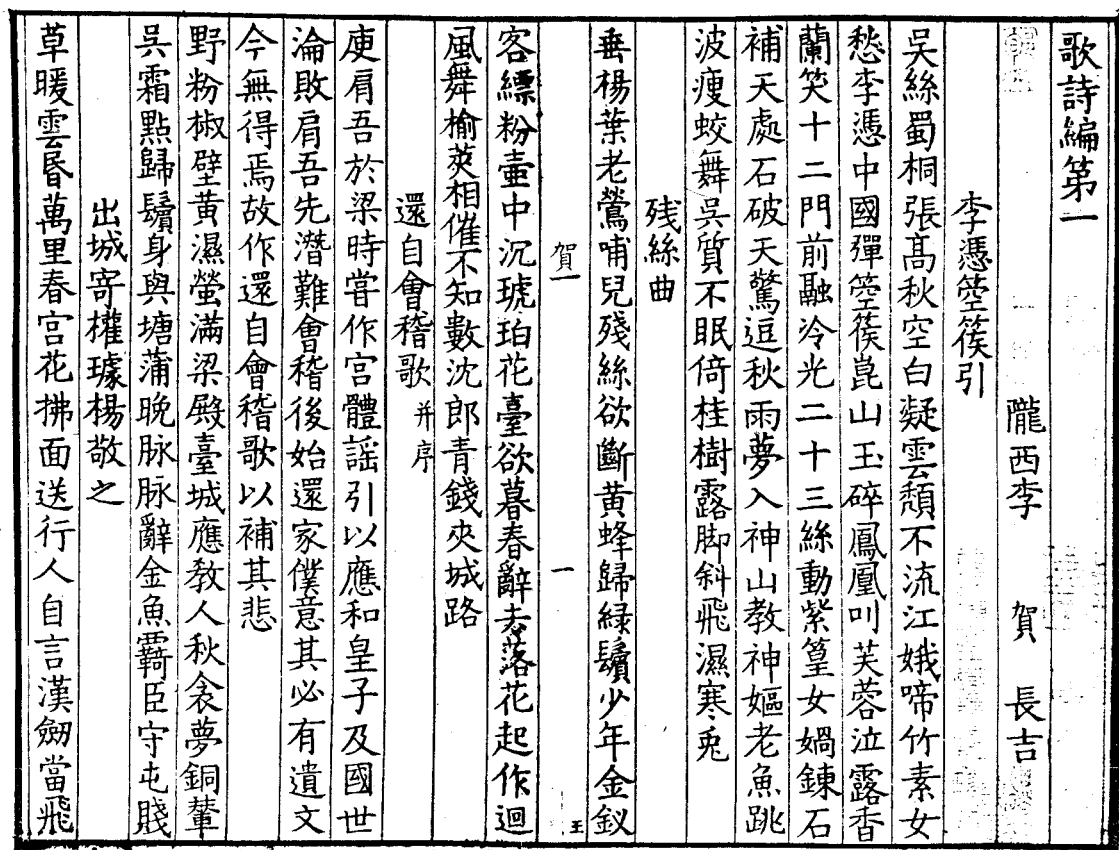 歌詩編第一
隴西李 賀 長吉
李憑箜篌引
吳絲蜀桐張髙秋空白凝雲頹不流江娥啼竹素女
愁李憑中國彈箜篌崑山玉碎鳳凰叫芙蓉泣露香
蘭笑十二門前融冷光二十三絲動紫篁女媧鍊石
補天處石破天驚逗秋雨夢入神山教神嫗老魚跳
波瘦蛟舞吳質不眠倚桂樹露脚斜飛濕寒兎
殘絲曲
垂楊葉老鶯哺兒殘絲欲斷黄蜂歸緑鬢少年金釵
賀一
一
王
客縹粉壷中沉琥珀花臺欲暮春辭去落花起作迴
風舞榆莢相催不知數沈郎青錢夾城路
還自會稽歌 并序
庾肩吾於梁時甞作宮體謡引以應和皇子及國世
淪敗肩吾先潛難會稽後始還家僕意其必有遺文
今無得焉故作還自會稽歌以補其悲
野粉椒壁黄濕螢滿梁殿臺城應敎人秋衾夢銅輦
吳霜點歸鬢身與塘蒲晚脉脉辭金魚覊臣守屯賤
出城寄權璩楊敬之
草暖雲昏萬里春宮花拂面送行人自言漢劒當飛